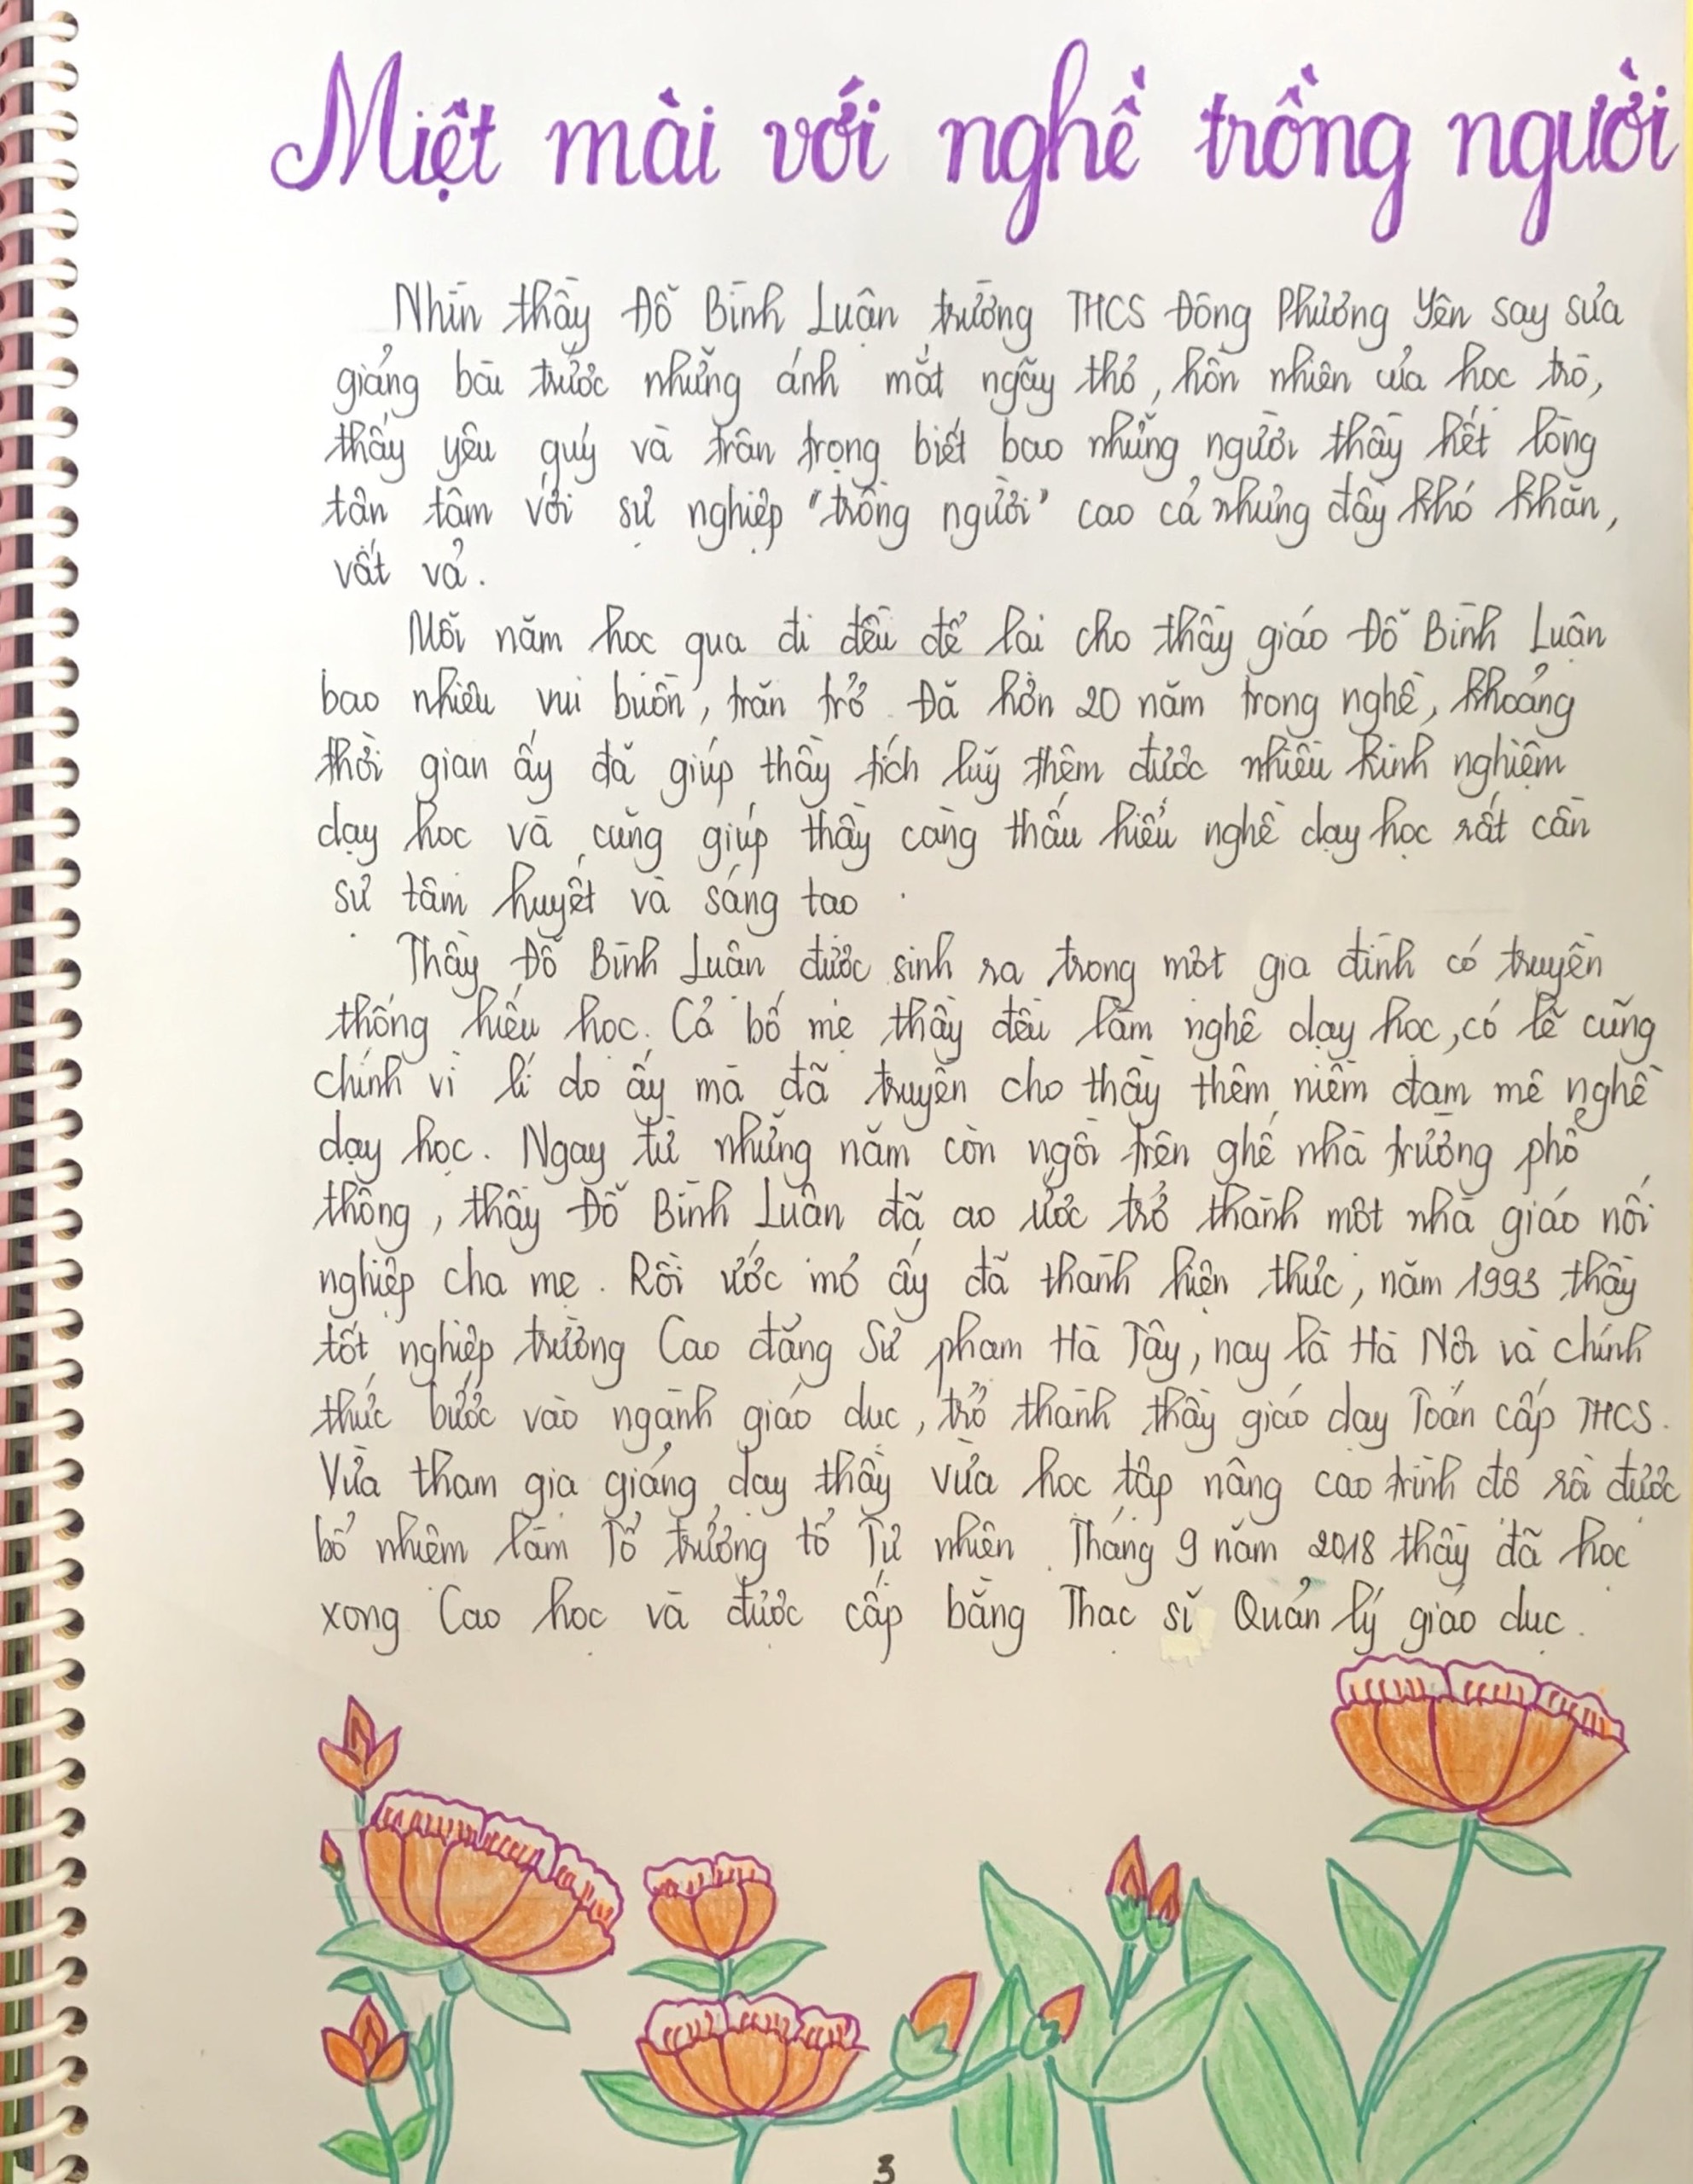 Miệt mài với nghề trồng người
Nhìn thầy Đỗ Bình Luận trường THCS Đông Phương Yên say sưa
giảng bài trước những ánh mắt ngây thơ, hồn nhiên của học trò,
thấy yêu quý và trân trọng biết bao những người thầy hết lòng
tận tâm với sự nghiệp "trồng người" cao cả nhưng đầy khó khăn,
vất vả.
Mỗi năm học qua đi đều để lại cho thầy giáo Đỗ Bình Luận
bao nhiêu vui buồn, trăn trở. Đã hơn 20 năm trong nghề, khoảng
thời gian ấy đã giúp thầy tích luỹ thêm được nhiều kinh nghiệm
dạy học và cũng giúp thầy càng thấu hiểu nghề dạy học rất cần
sự tâm huyết và sáng tạo.
Thầy Đỗ Bình Luận được sinh ra trong một gia đình có truyền
thống hiếu học. Cả bố mẹ thầy đều làm nghề dạy học, có lẽ cũng
chính vì lí do ấy mà đã truyền cho thầy thêm niềm đam mê nghề
dạy học. Ngay từ những năm còn ngồi trên ghế nhà trường phổ
thông, thầy Đỗ Bình Luận đã ao ước trở thành một nhà giáo nối
nghiệp cha mẹ. Rồi ước mơ ấy đã thành hiện thực, năm 1993 thầy
tốt nghiệp trường Cao đẳng Sư phạm Hà Tây, nay là Hà Nội và chính
thức bước vào ngành giáo dục, trở thành thầy giáo dạy Toán cấp THCS.
Vừa tham gia giảng dạy thầy vừa học tập nâng cao trình độ rồi được
bổ nhiệm làm Tổ trưởng tổ Tự nhiên. Tháng 9 năm 2018 thầy đã học
xong Cao học và được cấp bằng Thạc sĩ Quản lý giáo dục.
3